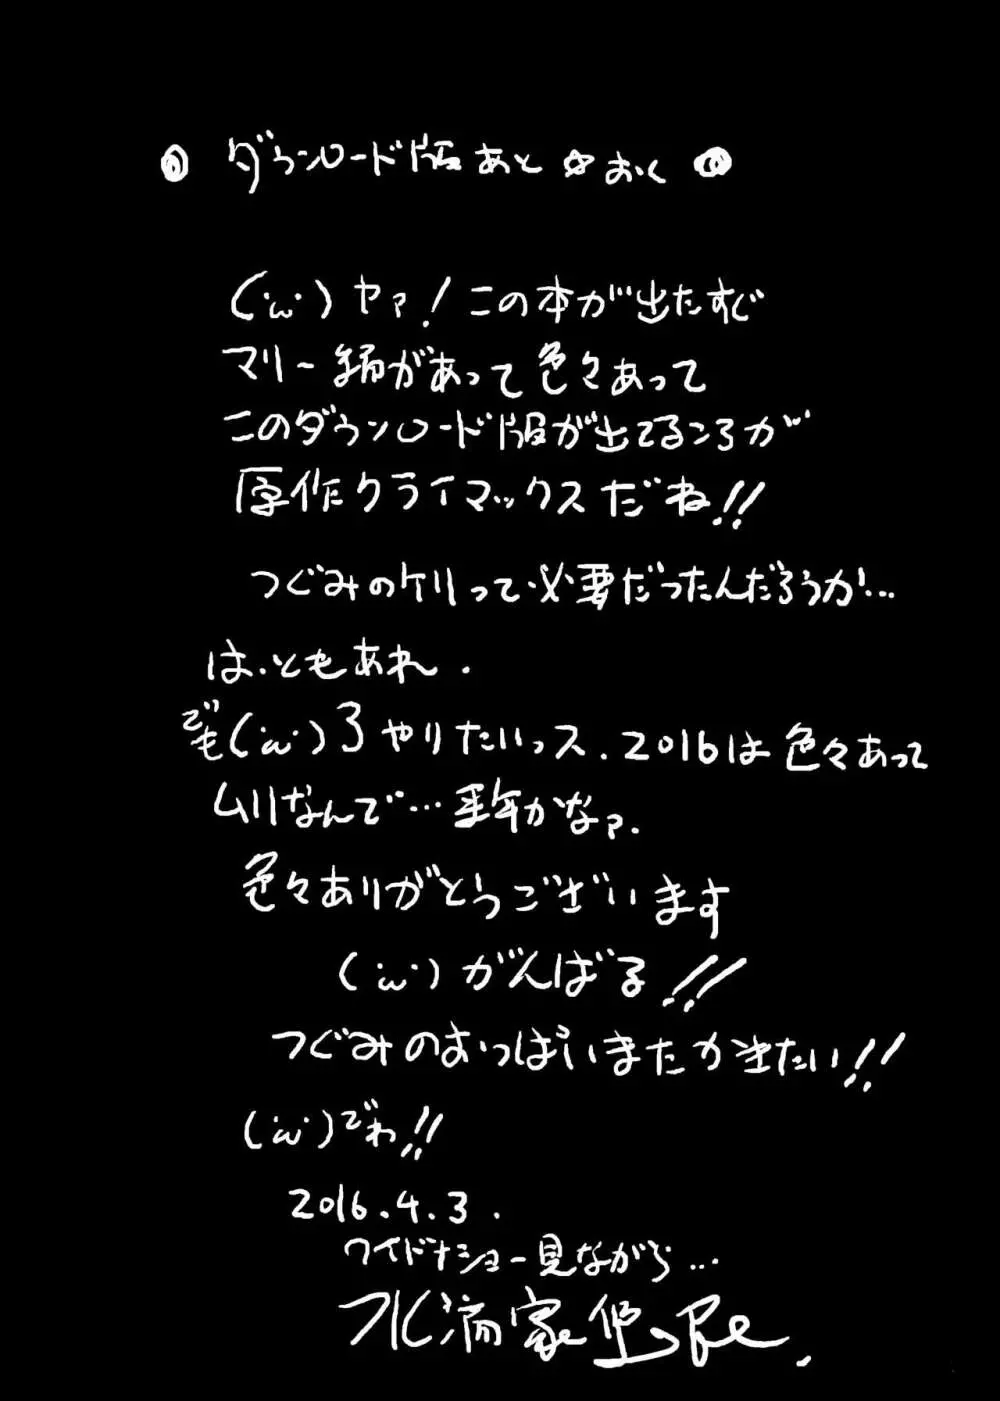 ◎ ダウンロード版あと☆おく ◎
(・ω・)ヤァ!この本が出たすぐ
マリー編があって色々あって
このダウンロード版が出てるころが
原作クライマックスだね!!
つぐみのケリって必要だったんだろうか…
は、ともあれ.
でも(・ω・)3やりたいっス.2016は色々あって
ムリなんで…来年かなァ.
色々ありがとうございます
(・ω・)がんばる!!
つぐみのおっぱいまたかきたい!!
(・ω・)でわ!!
2016.4.3.
ワイドナショー見ながら…